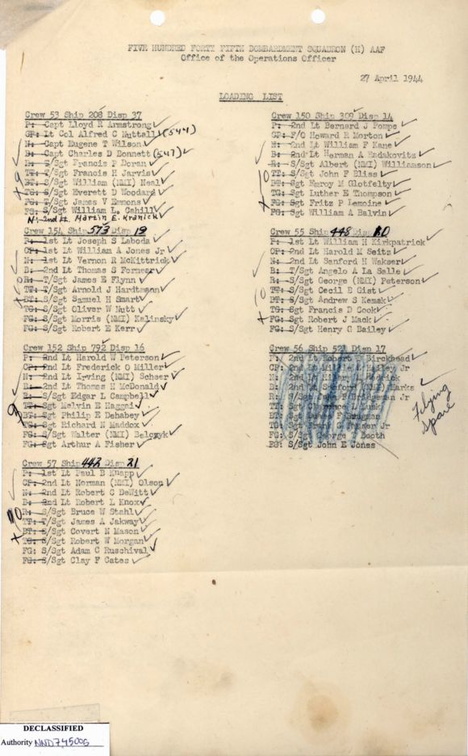 FIVE HUNDRED FORTY FIFTH BOMBARDMENT SQUADRON (H) AAF
Office of the Operations Officer
27 April 1944
LOADING LIST
Crew 53 Ship 208 Disp 37
P: Capt Lloyd R Armstrong
CP: Lt Col Alfred C Nuttall (544)
N: Capt Eugene T Wilson
B: Capt Charles D Bonnett (547)
R: T/Sgt Francis F Doran
TT: T/Sgt Francis H Jarvis
BT: S/Sgt William (NMI) Neal
TG: S/Sgt Everett D Woodard
FG: T/Sgt James V Emmons
FG: S/Sgt William L. Cahill
N- 2nd Lt Martin E. Kranick
Crew 154 Ship 573 Disp 19
P: 1st Lt Joseph S Laboda
CP: 1st Lt William A Jones Jr
N: 1st Lt Vernon R McKittrick
B: 2nd Lt Thomas S
R: T/Sgt James E Flynn
TT: T/Sgt Arnold J Hardtmann
BT: S/Sgt Samuel H Smart
TG: S/Sgt Oliver W Nutt
FG: S/Sgt Morris (NMI) Kalinsky
FG: S/Sgt Robert E Kerr
Crew 152 Ship 792 Disp 16
P: 2nd Lt Harold W Peterson
CP: 2nd Lt Frederick O Miller
N: 2nd Lt Irving (NMI) Schaer
B: 2nd Lt Thomas H McDonald
R: S/Sgt Edgar L Campbell
TT: Sgt Melvin E
BT: Sgt Philip E Dehabey
TG: Sgt Richard N Maddox
FG: S/Sgt Walter (NMI) Belczyk
FG: Sgt Arthur A Fisher
9
Crew 57 Ship 442 Disp 21
P: 1st Lt Paul B Knapp
CP: 2nd Lt Herman (NMI) Olson
N: 2nd Lt Robert C DeWitt
B: 2nd Lt Robert L Knox
R: S/Sgt Bruce W Stahl
TT: T/Sgt James A Jakway
BT: S/Sgt Covert N Mason
TG: S/Sgt Robert W Morgan
FG: S/Sgt Adam C Ruschival
FG: S/Sgt Clay F Cates
10
Crew 150 Ship 309 Disp 14
P: 2nd Lt Bernard J
CP: F/O Howard R Morton
N: 2nd Lt William F Kane
B: 2nd Lt Herman A
R: S/Sgt Albert (NMI) Williamson
TT: S/Sgt John F Eliss
BT: Sgt Meroy M Glotfelty
TG: Sgt Luther E Thompson
FG: Sgt Fritz P Lemoine
FG: Sgt William A Belvin
10
Crew 55 Ship 448 Disp
P: 1st Lt William H Kirkpatrick
CP: 2nd Lt Harold M Seitz
N: 2nd Lt Sanford H
B: T/Sgt Angelo A La Salle
R: S/Sgt George (NMI) Peterson
TT: S/Sgt Cecil E Gist
BT: S/Sgt Andrew S
TG: Sgt Francis D Cook
FG: Sgt Robert J Mack
FG: S/Sgt Henry C Bailey
10
Crew 56 Ship Disp 17
P: 2nd Lt Robert Birckhead
FG: S/Sgt John E Jones
Flying
Spare
DECLASSIFIED
Authority NND745005